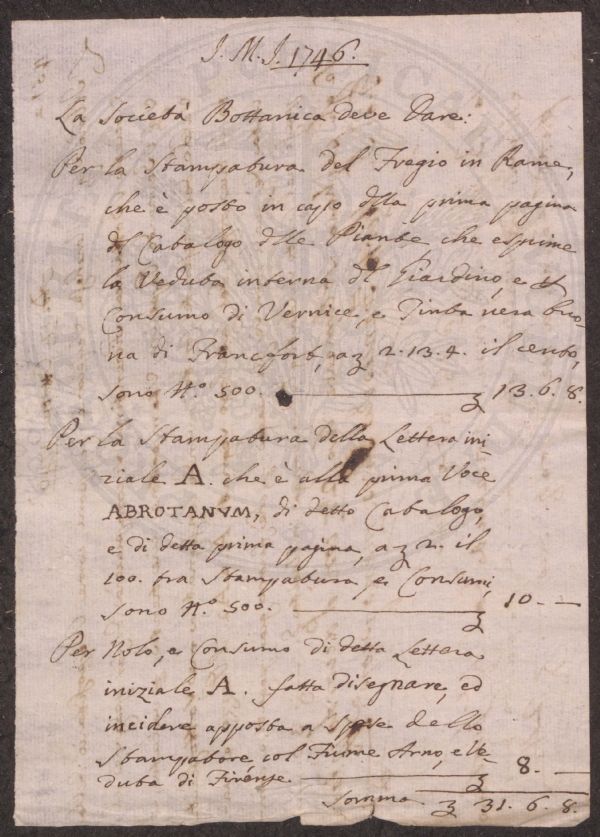 J. M. J. 1746.
La Società Bottanica deve Dare:
Per la Stampatura del Fregio in Rame,
che è posto in capo della prima pagina
del Catalogo delle Piante che esprime
la Veduta interna del Giardino, e
Consumo di Vernice, e Tinta nera buo-
na di Francfort, a ʒ 2. 13. 4. il cento,
sono N.º 500. ʒ 13. 6. 8.
Per la Stampatura della Lettera ini-
ziale A. che è alla prima Voce
ABROTANVM, di detto Catalogo,
e di detta prima pagina, a ʒ 2. il
100. tra Stampatura, e Consumi,
sono N.º 500. ʒ 10. —
Per Nolo, e Consumo di detta Lettera
iniziale A. fatta disegnare, ed
incidere apposta a spese dello
Stampatore col Fiume Arno, e Ve-
duta di Firenze ʒ 8. —
Somma ʒ 31. 6. 8.